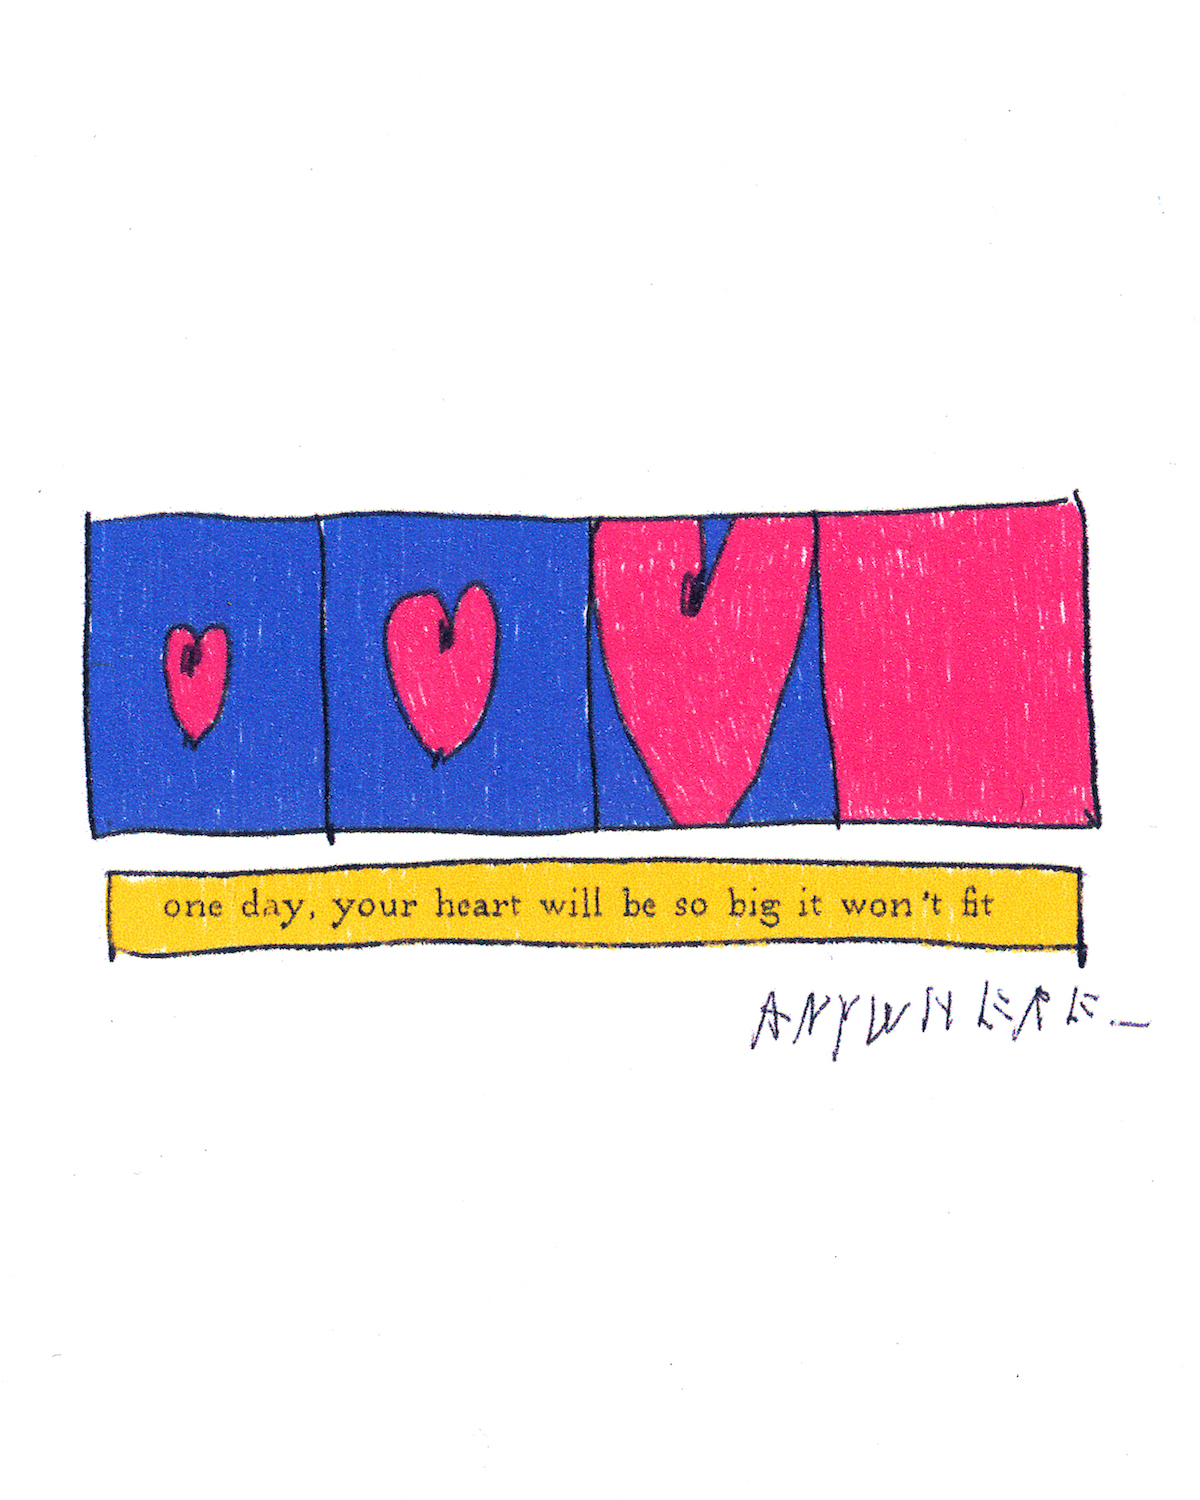 one day, your heart will be so big it won't fit
ANYWHERE._